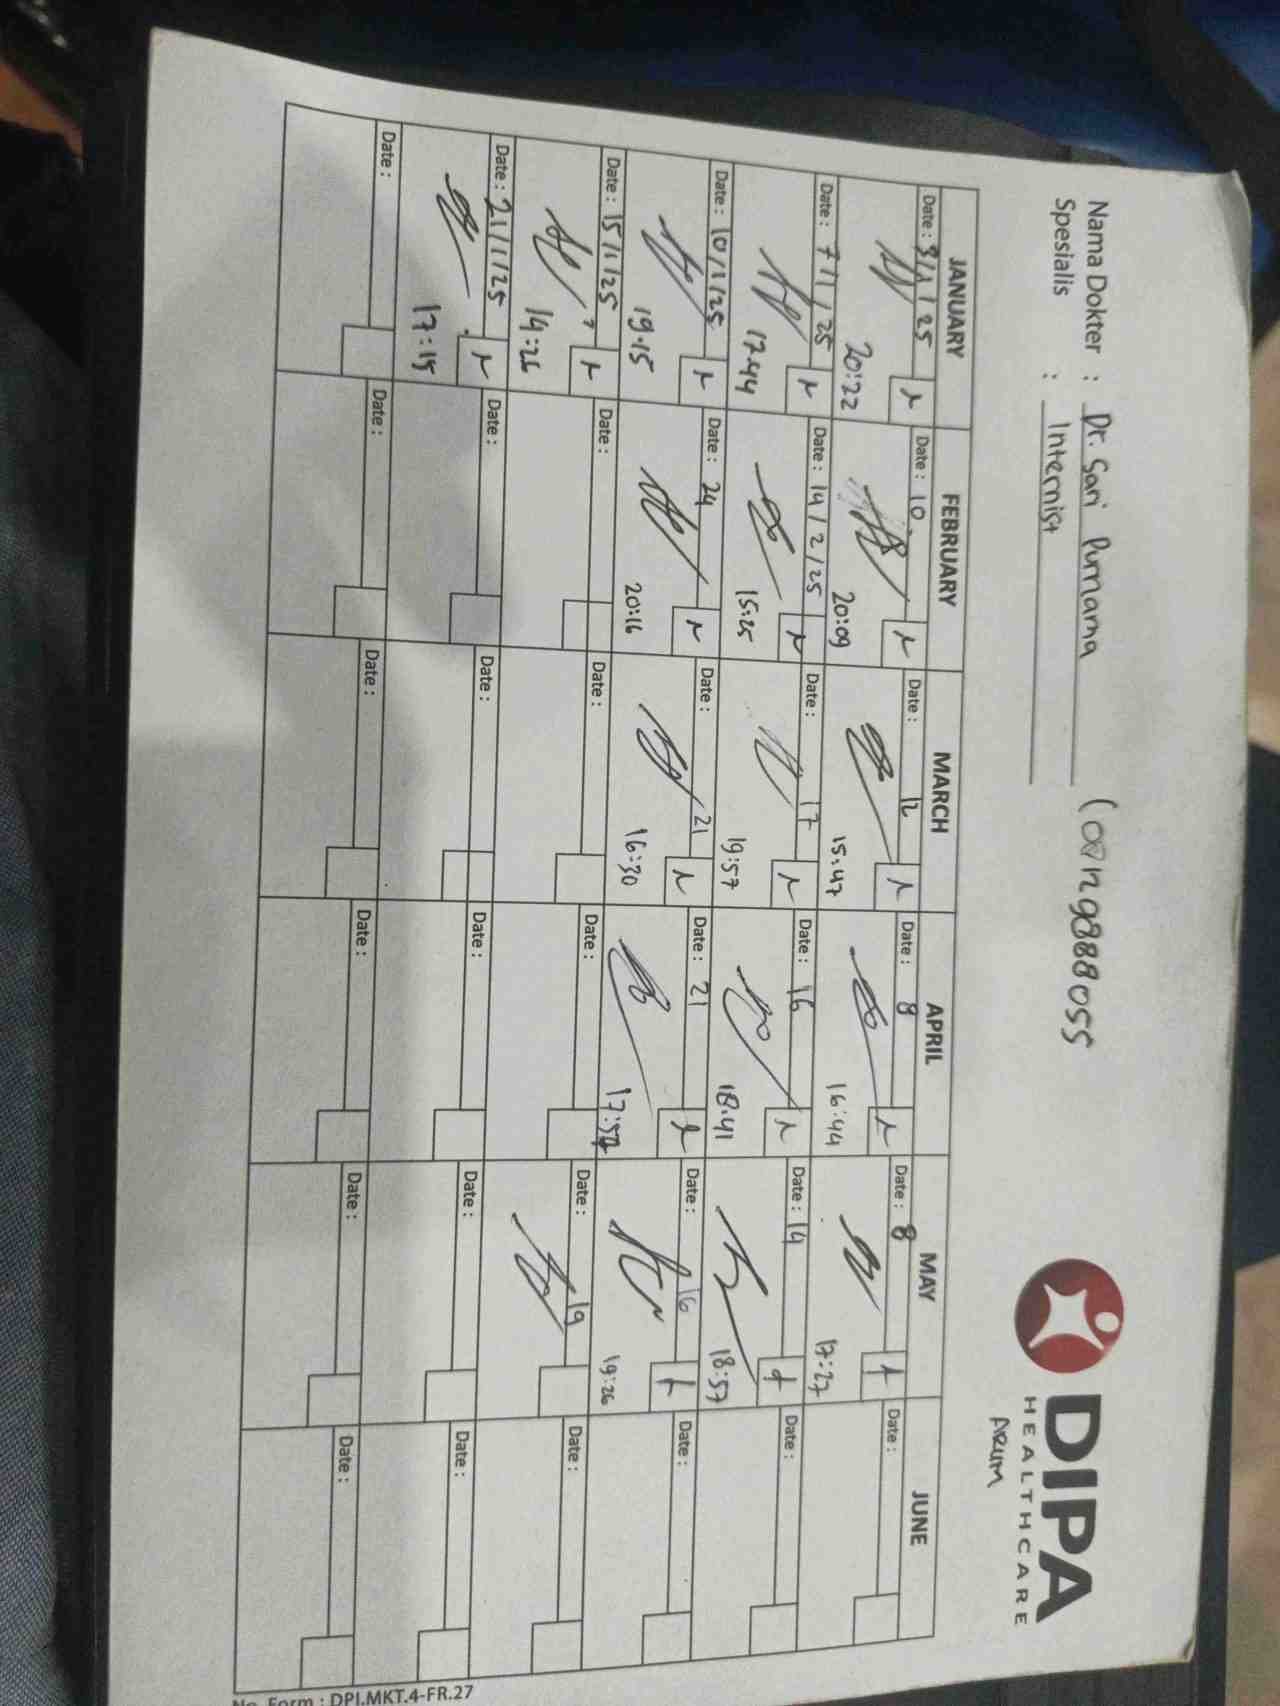 Nama Dokter : Dr. Sari Purnama (00129888055
Spesialis : Internist
DIPA
HEALTHCARE
ARUM
JANUARY FEBRUARY MARCH APRIL MAY JUNE
Date : 3/1/25 Date : 10 Date : 12 Date : 8 Date : 8 Date :
20:22 20:09 15:47 16:44 17:27
Date : 7/1/25 Date : 14/2/25 Date : 17 Date : 16 Date : 14 Date :
17.44 15:25 19:57 18.41 18:57
Date : 10/1/25 Date : 24 Date : 21 Date : 21 Date : 16 Date :
19.15 20:16 16:30 17:57 19:26
Date : 15/1/25 Date : Date : Date : Date : 19 Date :
14:26
Date : 21/1/25 Date : Date : Date : Date : Date :
17:15
Date : Date : Date : Date : Date : Date :
No. Form : DPI.MKT.4-FR.27